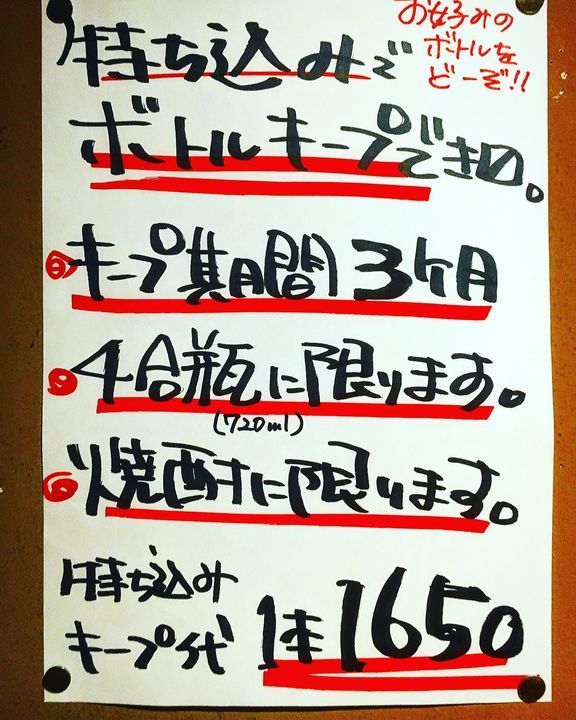 お好みの
ボトルを
どーぞ!!
持ち込みで
ボトルキープできる。
キープ期間3ヶ月
4合瓶に限ります。
(720ml)
焼酎に限ります。
持ち込み
キープ代 1本1650